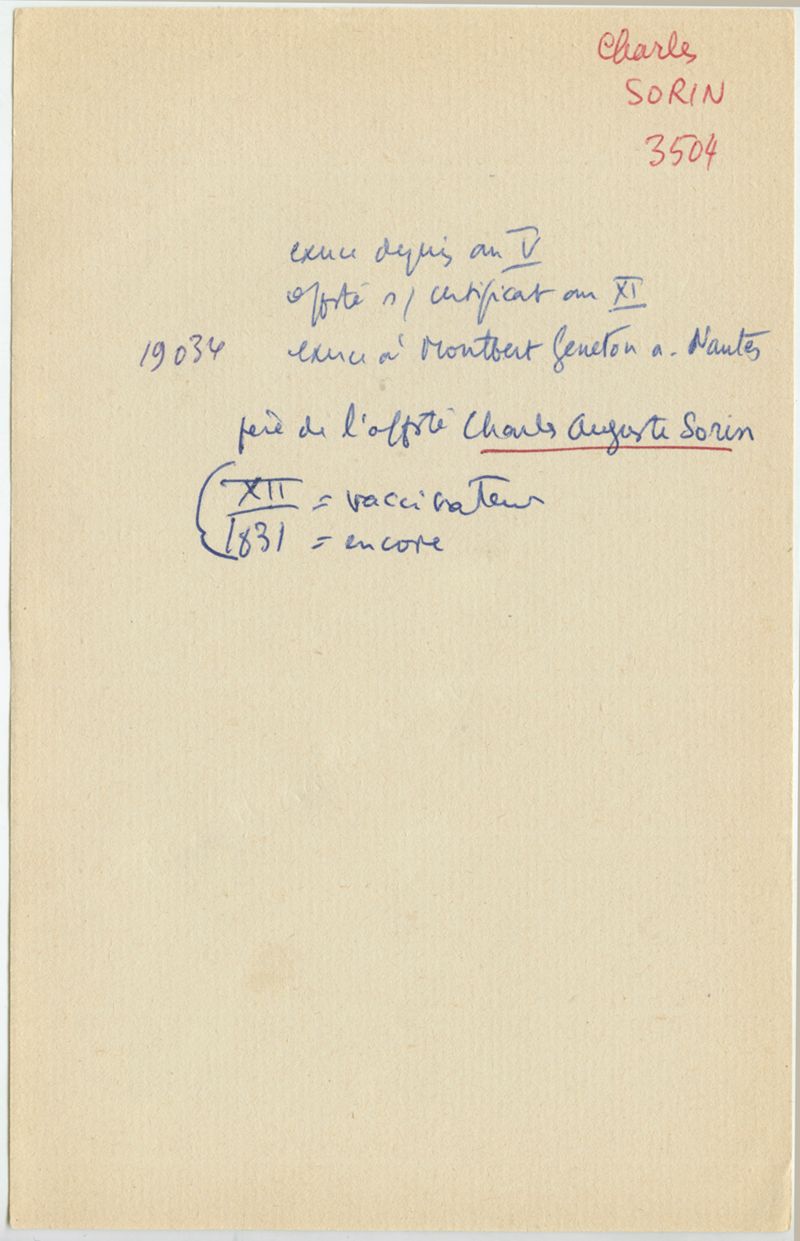 Charles
SORIN
3504
exerce depuis an V
offsté s/ certificat an XI
19034 exerce à Montbert Geneton a. Nantes
père de l'offsté Charles Auguste Sorin
XII = vaccinateur
1831 = encore